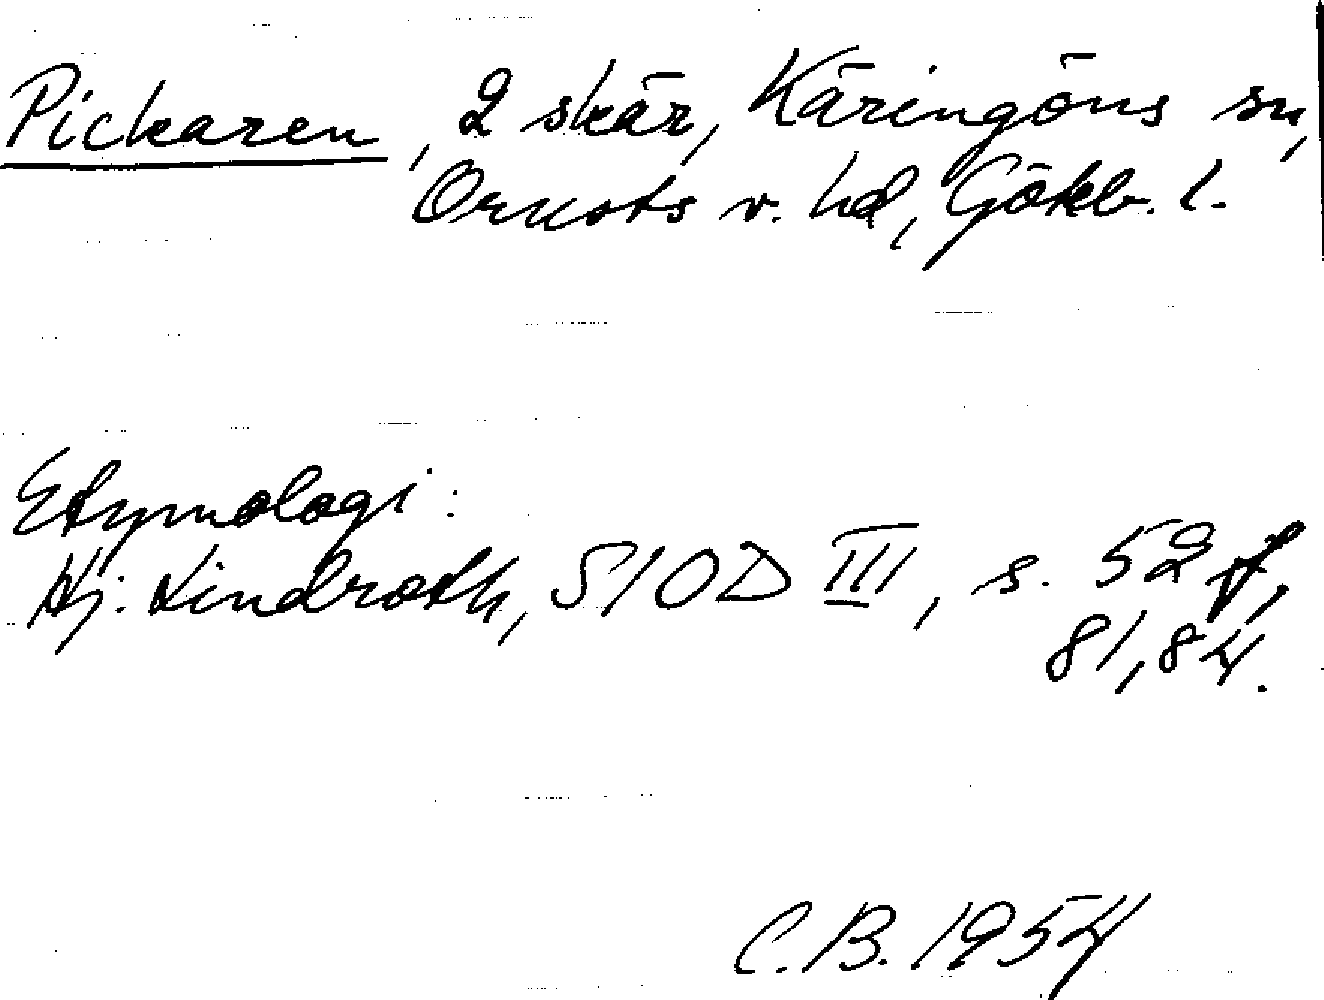 Pickaren, 2 skär, Käringöns sn,
Orusts v. hd, Göteb. l.
Etymologi:
Hj. Lindroth, SIOD III, s. 52 f,
81, 84.
C.B. 1954